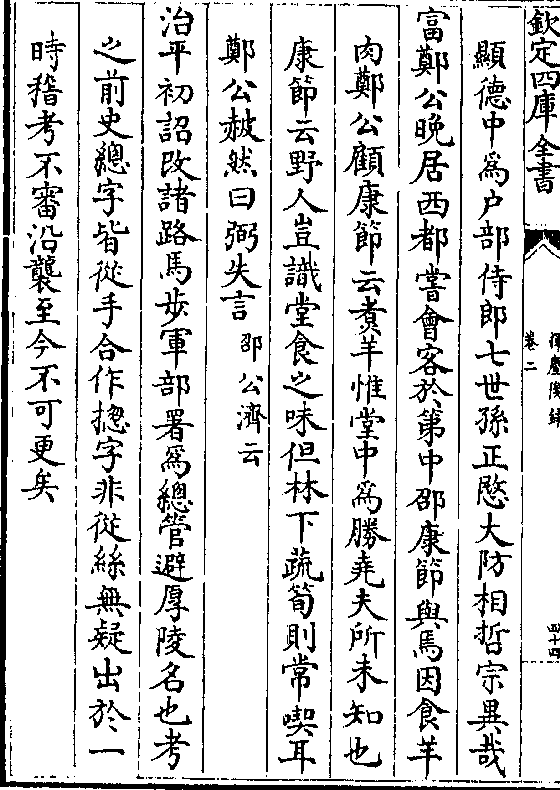 欽定四庫全書
揮麈後錄
卷二
四十四
顯德中為戶部侍郎七世孫正愍大防相哲宗異哉
富鄭公晚居西都嘗會客於第中邵康節與焉因食羊
肉鄭公顧康節云煑羊惟堂中為勝堯夫所未知也
康節云野人豈識堂食之味但林下蔬筍則常喫耳
鄭公赧然曰弼失言邵公濟云
治平初詔改諸路馬步軍部署為總管避厚陵名也考
之前史總字皆從手合作摠字非從絲無疑出於一
時稽考不審沿襲至今不可更矣